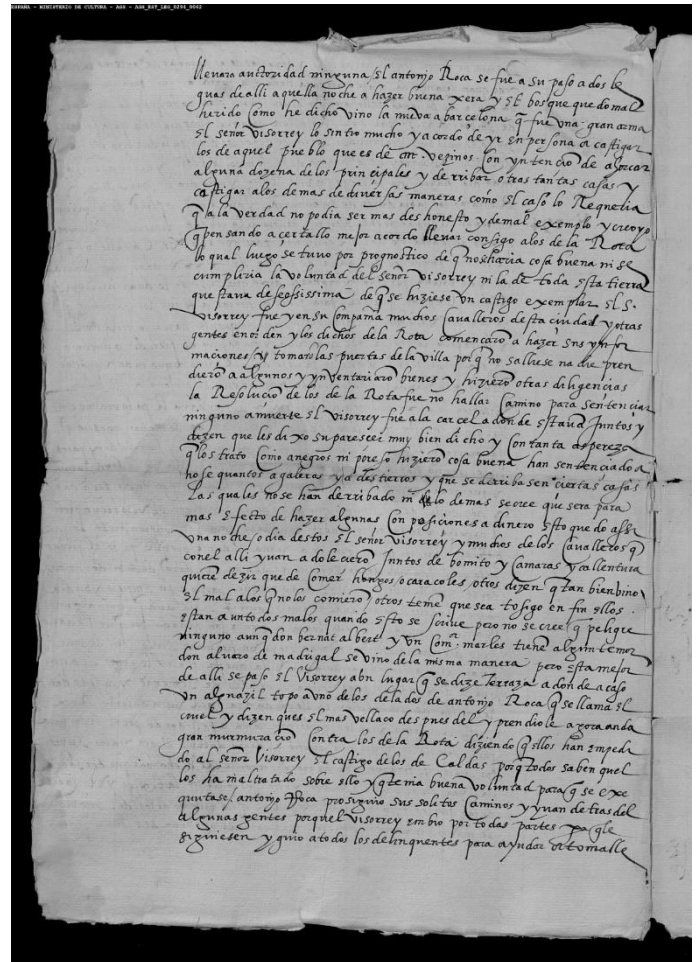 ESPAÑA - MINISTERIO DE CULTURA - AGS - AGS_EST_LEG_0294_0062
llevara auctoridad ninguna / el antonjo Roca se fue a su paso a dos le
guas de alli aquella noche a hazer buena xera y el bosque quedo mal
herido Como he dicho vino la nueva a barcelona q̄ fue una gran arma
El señor visorrey lo sentio mucho y acordo de yr en persona a castigar
los de aquel pueblo que es de vezinos Con yntencio de
alguna dozena de los principales y derribar otras tantas casas y
castigar a los demas de diversas maneras como el caso lo Requeria
q̄ a la verdad no podia ser mas deshonesto y de mal exemplo y creo yo
q̄ pensando acertallo mejor acordo llevar consigo a los de la Rota
lo qual luego se tuvo por pronostico de q̄ no se haria cosa buena ni se
cumpliria la voluntad del señor visorrey ni la de toda esta tierra
que estava deseosissima de q̄ se hiziese un castigo exemplar El S.
visorrey fue y en su compañia muchos Cavalleros desta ciudad y otras
gentes en orden y los dichos de la Rota comencarō a hazer sus ynfor
maciones / y tomarō las puertas de la villa porq̄ no salliese nadie pren
dierō a algunos y ynventariarō bienes y hizierō otras diligencias
la Resolucio de los de la Rota fue no hallar Camino para sentenciar
ninguno a muerte El visorrey fue a la carcel a donde estavā Juntos y
dizen que les dixo su parescer muy bien dicho y Con tanta aspereza
q̄ los trato Como a negros ni por eso hizierō cosa buena han sentenciado a
no se quantos a galeras y a destierros y que se derribasen ciertas casas
las quales no se han derribado ni lo demas se cree que sera para
mas efecto de hazer algunas Conposiciones a dinero Esto quedo assi
Una noche / o dia destos El señor visorrey y muchos de los Cavalleros q̄
con el alli yuan adolecierō Juntos de bomito y Camaras y callentura
quierē dezir que de Comer hongos / o caracoles, otros dizen q̄ tan bien vino
el mal a los q̄ no los comierō / otros temē que sea tosigo en fin ellos
estan aun todos malos quando Esto se scrive pero no se cree q̄ peligre
ninguno aunq̄ don bernat albert y un Comr. marles tienē algun temor
don alvaro de madrigal se vino de la misma manera pero esta mejor
de alli se paso El visorrey a hun lugar q̄ se dize Terraza a donde acaso
un alguazil topo a uno de los de la dos de antonjo Roca q̄ se llama El
cruel y dizen que es El mas vellaco despues del y prendiole agora anda
gran murmuracio Contra los de la Rota diziendo q̄ ellos han impedi
do al señor Visorrey El castigo de los de Caldas porq̄ todos saben quel
los ha maltratado sobre ello y q̄ tenia buena voluntad para q̄ se exe
quutase / antonjo Roca prosiguio sus solitos Caminos y yvan detras del
algunas gentes porquel visorrey enbio por todas partes pa q̄ le
siguiesen y guio a todos los delinquentes para ayudar a tomalle